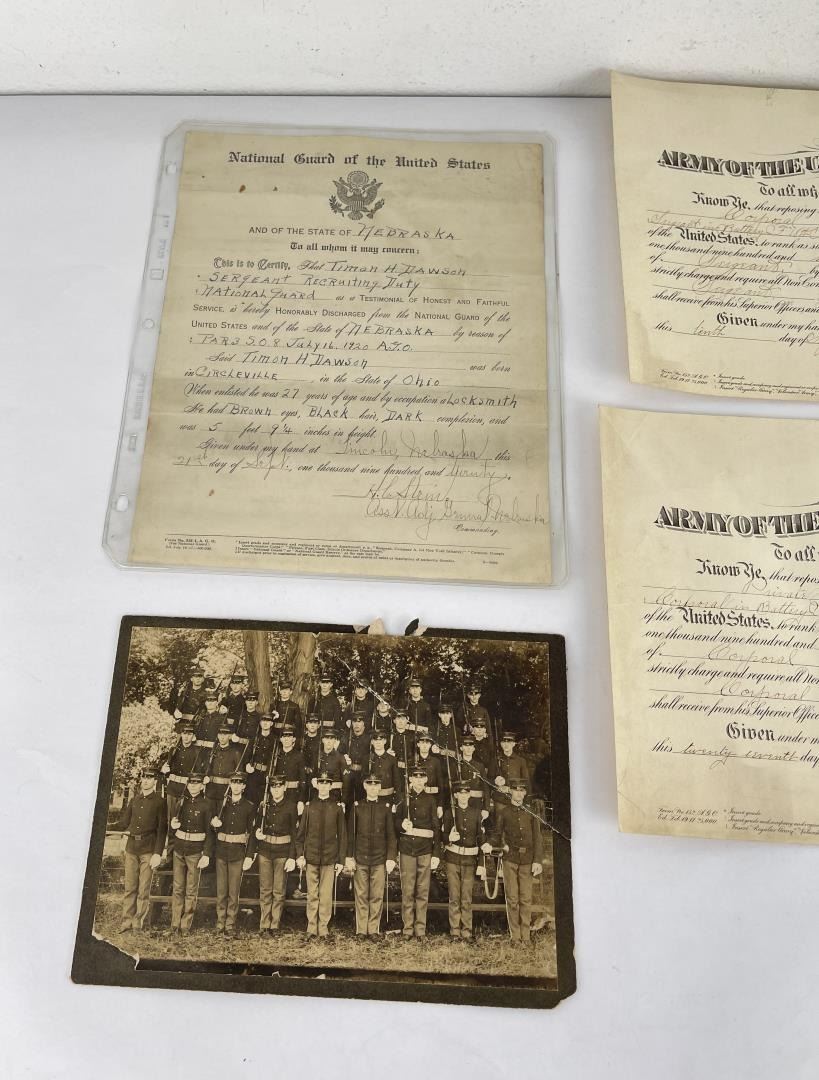 National Guard of the United States
AND OF THE STATE OF NEBRASKA
To all whom it may concern:
This is to Certify, That TIMON H. DAWSON
SERGEANT RECRUITING DUTY
NATIONAL GUARD as a TESTIMONIAL OF HONEST AND FAITHFUL
SERVICE, is hereby HONORABLY DISCHARGED from the NATIONAL GUARD of the
UNITED STATES and of the State of NEBRASKA by reason of
PAR 3 S.O. 8 JULY 16, 1920 A.G.O.
Said TIMON H DAWSON was born
in CIRCLEVILLE, in the State of OHIO
When enlisted he was 27 years of age and by occupation a LOCKSMITH
He had BROWN eyes, BLACK hair, DARK complexion, and
was 5 feet 9¼ inches in height.
Given under my hand at Lincoln, Nebraska this
21st day of Sept., one thousand nine hundred and twenty.
H. C. Stein
Ass't Adj. General Nebraska
Commanding.
ARMY OF THE U
To all wh
Know Ye, that reposing
Corporal
of the United States, to rank as su
one thousand nine hundred and
of Sergeant by
strictly charge and require all Non Com
Sergeant
shall receive from his Superior Officers an
Given under my han
this tenth day of
ARMY OF THE
To all
Know Ye, that repos
Private
Corporal in Battery
of the United States, to rank
one thousand nine hundred and
of Corporal
strictly charge and require all Non
Corporal
shall receive from his Superior Offic
Given under m
this twenty seventh day